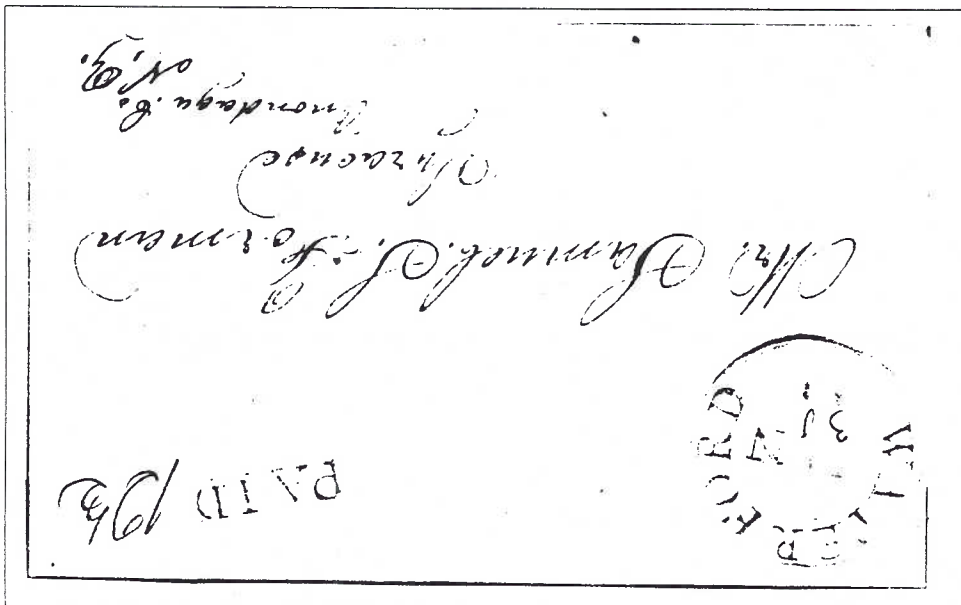 WATERFORD
PAID 12½
Mr. Samuel. S. Forman
Syracuse
Onondaga. Co
N,Y.